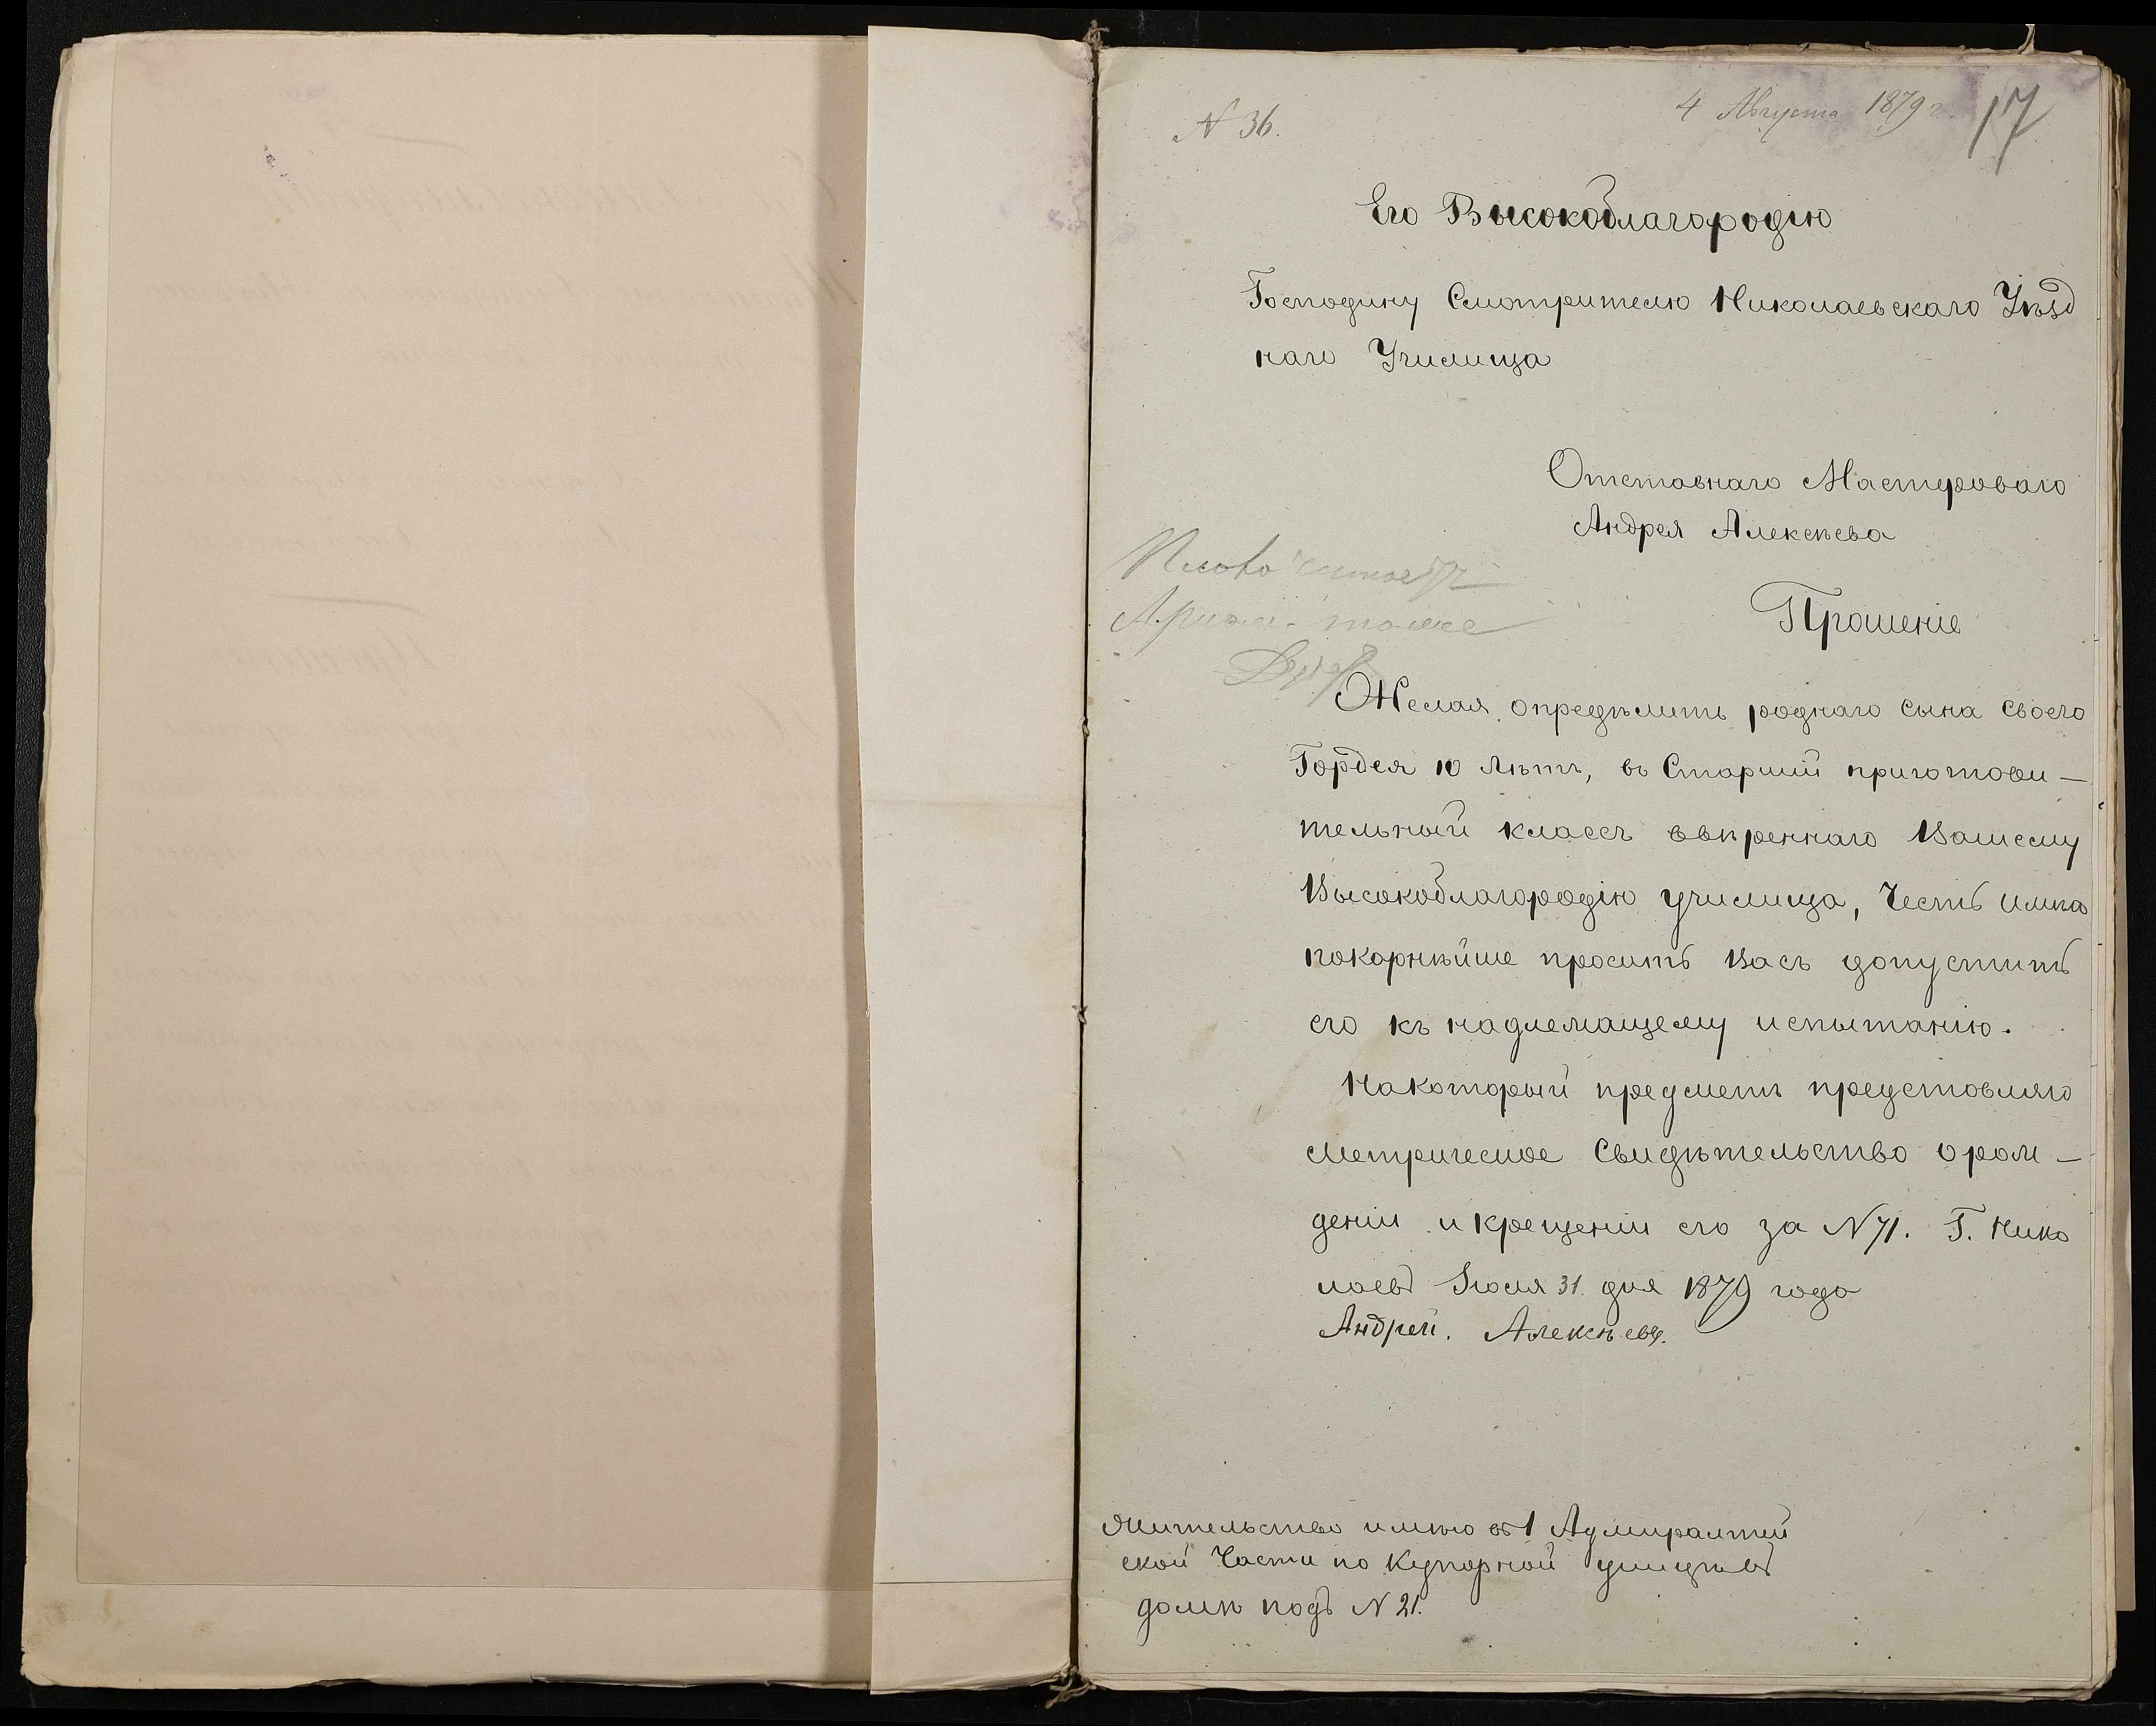 N 36.
4 Августа 1879 г. 17
Его Высокоблагородію
Господину Смотрителю Николаевскаго Уѣзд
наго Училища
Отставнаго Мастероваго
Андрея Алексѣева
Плохо читаетъ
Арием. тоже
Прошеніе
Желая опредѣлить роднаго сына своего
Гордея 10 лѣтъ, въ Старшій приготови–
тельный классъ ввѣреннаго Вашему
Высокоблагородію училища, Честь имѣю
покорнѣйше просить Васъ допустить
его къ надлежащему испытанію.
На который предметъ представляю
Метрическое Свидѣтельство о рож–
деніи и крещеніи его за N 71. Г. Нико
лаевъ Іюля 31. дня 1879 года
Андрей. Алексѣевъ.
Жительство имѣю въ 1 Адмиралтей
ской Части по Купорной улицѣ въ
домѣ подъ N 21.